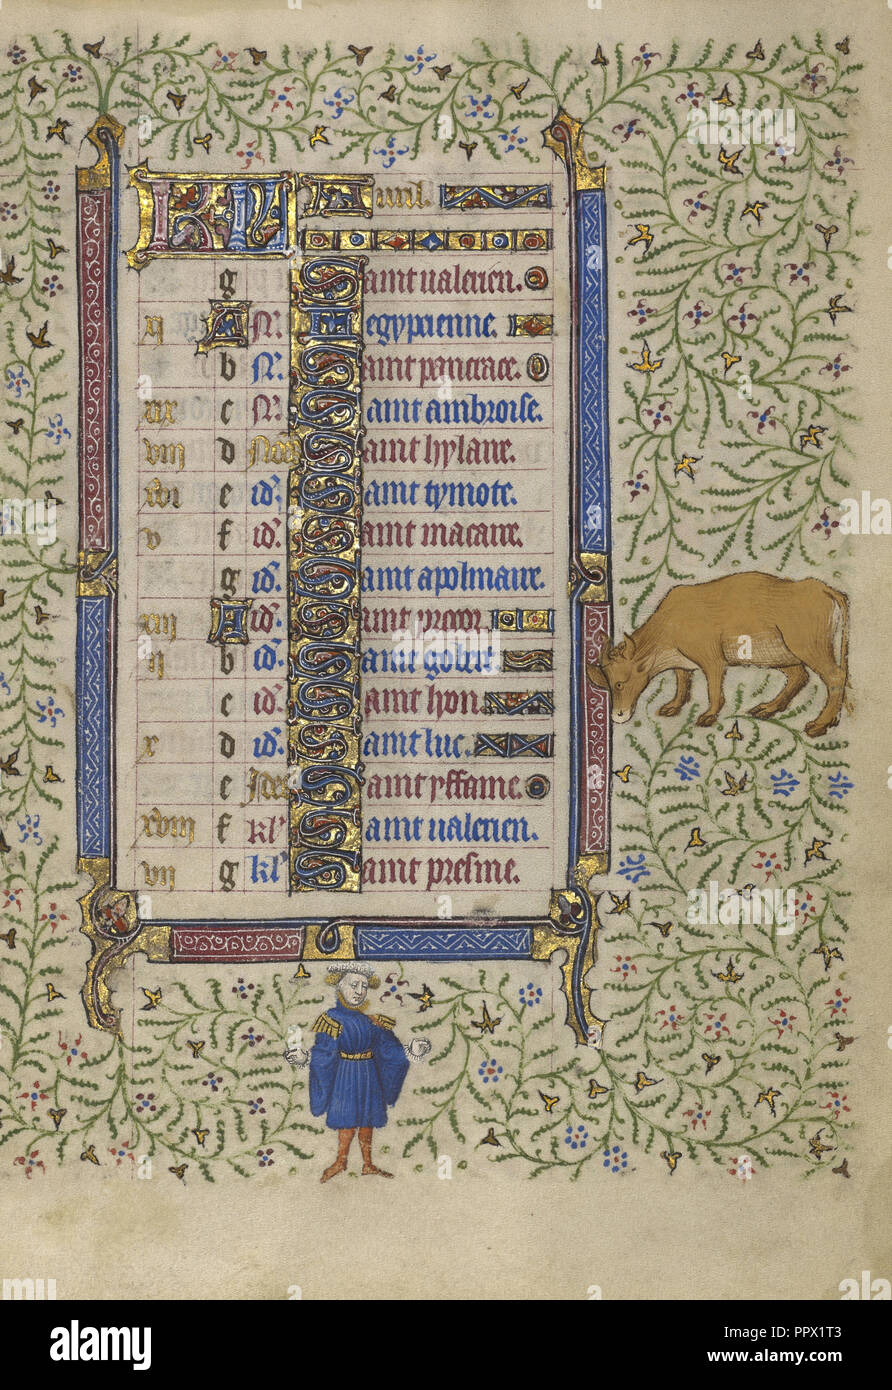 KL Auril.
g Saint ualerien.
xi A N. L egypcienne.
b N. Saint pancrace.
xix c N. Saint ambroise.
viii d Non Saint hylaire.
xvi e id. Saint tymote.
v f id. Saint macaire.
g id. Saint apolinaire.
xiii A id. Saint
ii b id. Saint gobert.
c id. Saint lyon.
x d id. Saint luc.
e Ides Saint yffame.
xviii f kl. Saint ualerien.
vii g kl. Saint presme.
alamy
Image ID: PPX1T3
www.alamy.com